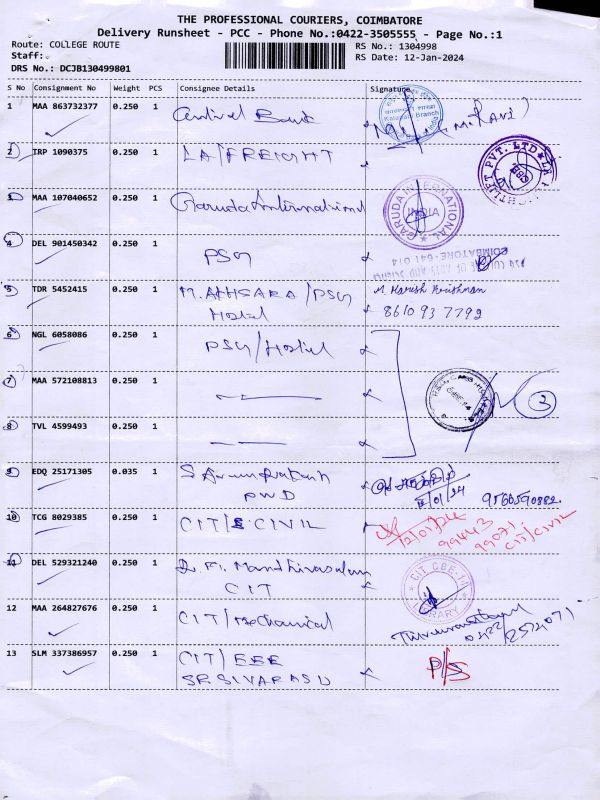 THE PROFESSIONAL COURIERS, COIMBATORE
Delivery Runsheet - PCC - Phone No.:0422-3505555 - Page No.:1
Route: COLLEGE ROUTE
RS No.: 1304998
Staff:
RS Date: 12-Jan-2024
DRS No.: DCJB130499801
S No Consignment No Weight PCS Consignee Details Signature
1 MAA 863732377 0.250 1 Central Bank
Kalapatti Branch
2 TRP 1090375 0.250 1 LA/FREIGHT
3 MAA 107040652 0.250 1 Garuda International
GARUDA INTERNATIONAL
INDIA
COIMBATORE-641 014
4 DEL 901450342 0.250 1 PSG
5 TDR 5452415 0.250 1 M. AKHSARA /PSG
Hostel
M. Harish Krishnan
8610 93 7792
6 NGL 6058086 0.250 1 PSG/Hostel
7 MAA 572108813 0.250 1
3
8 TVL 4599493 0.250 1
9 EDQ 25171305 0.035 1 S Arun Prakash
PWD
12/01/24
10 TCG 8029385 0.250 1 CIT/ CIVIL
12/01/24
99443
99071
CIT/CIVIL
11 DEL 529321240 0.250 1
CIT
CIT CBE-14
LIBRARY
12 MAA 264827676 0.250 1 CIT/Mechanical
0422
13 SLM 337386957 0.250 1 CIT/EEE
SR.SIVARASU
P/S